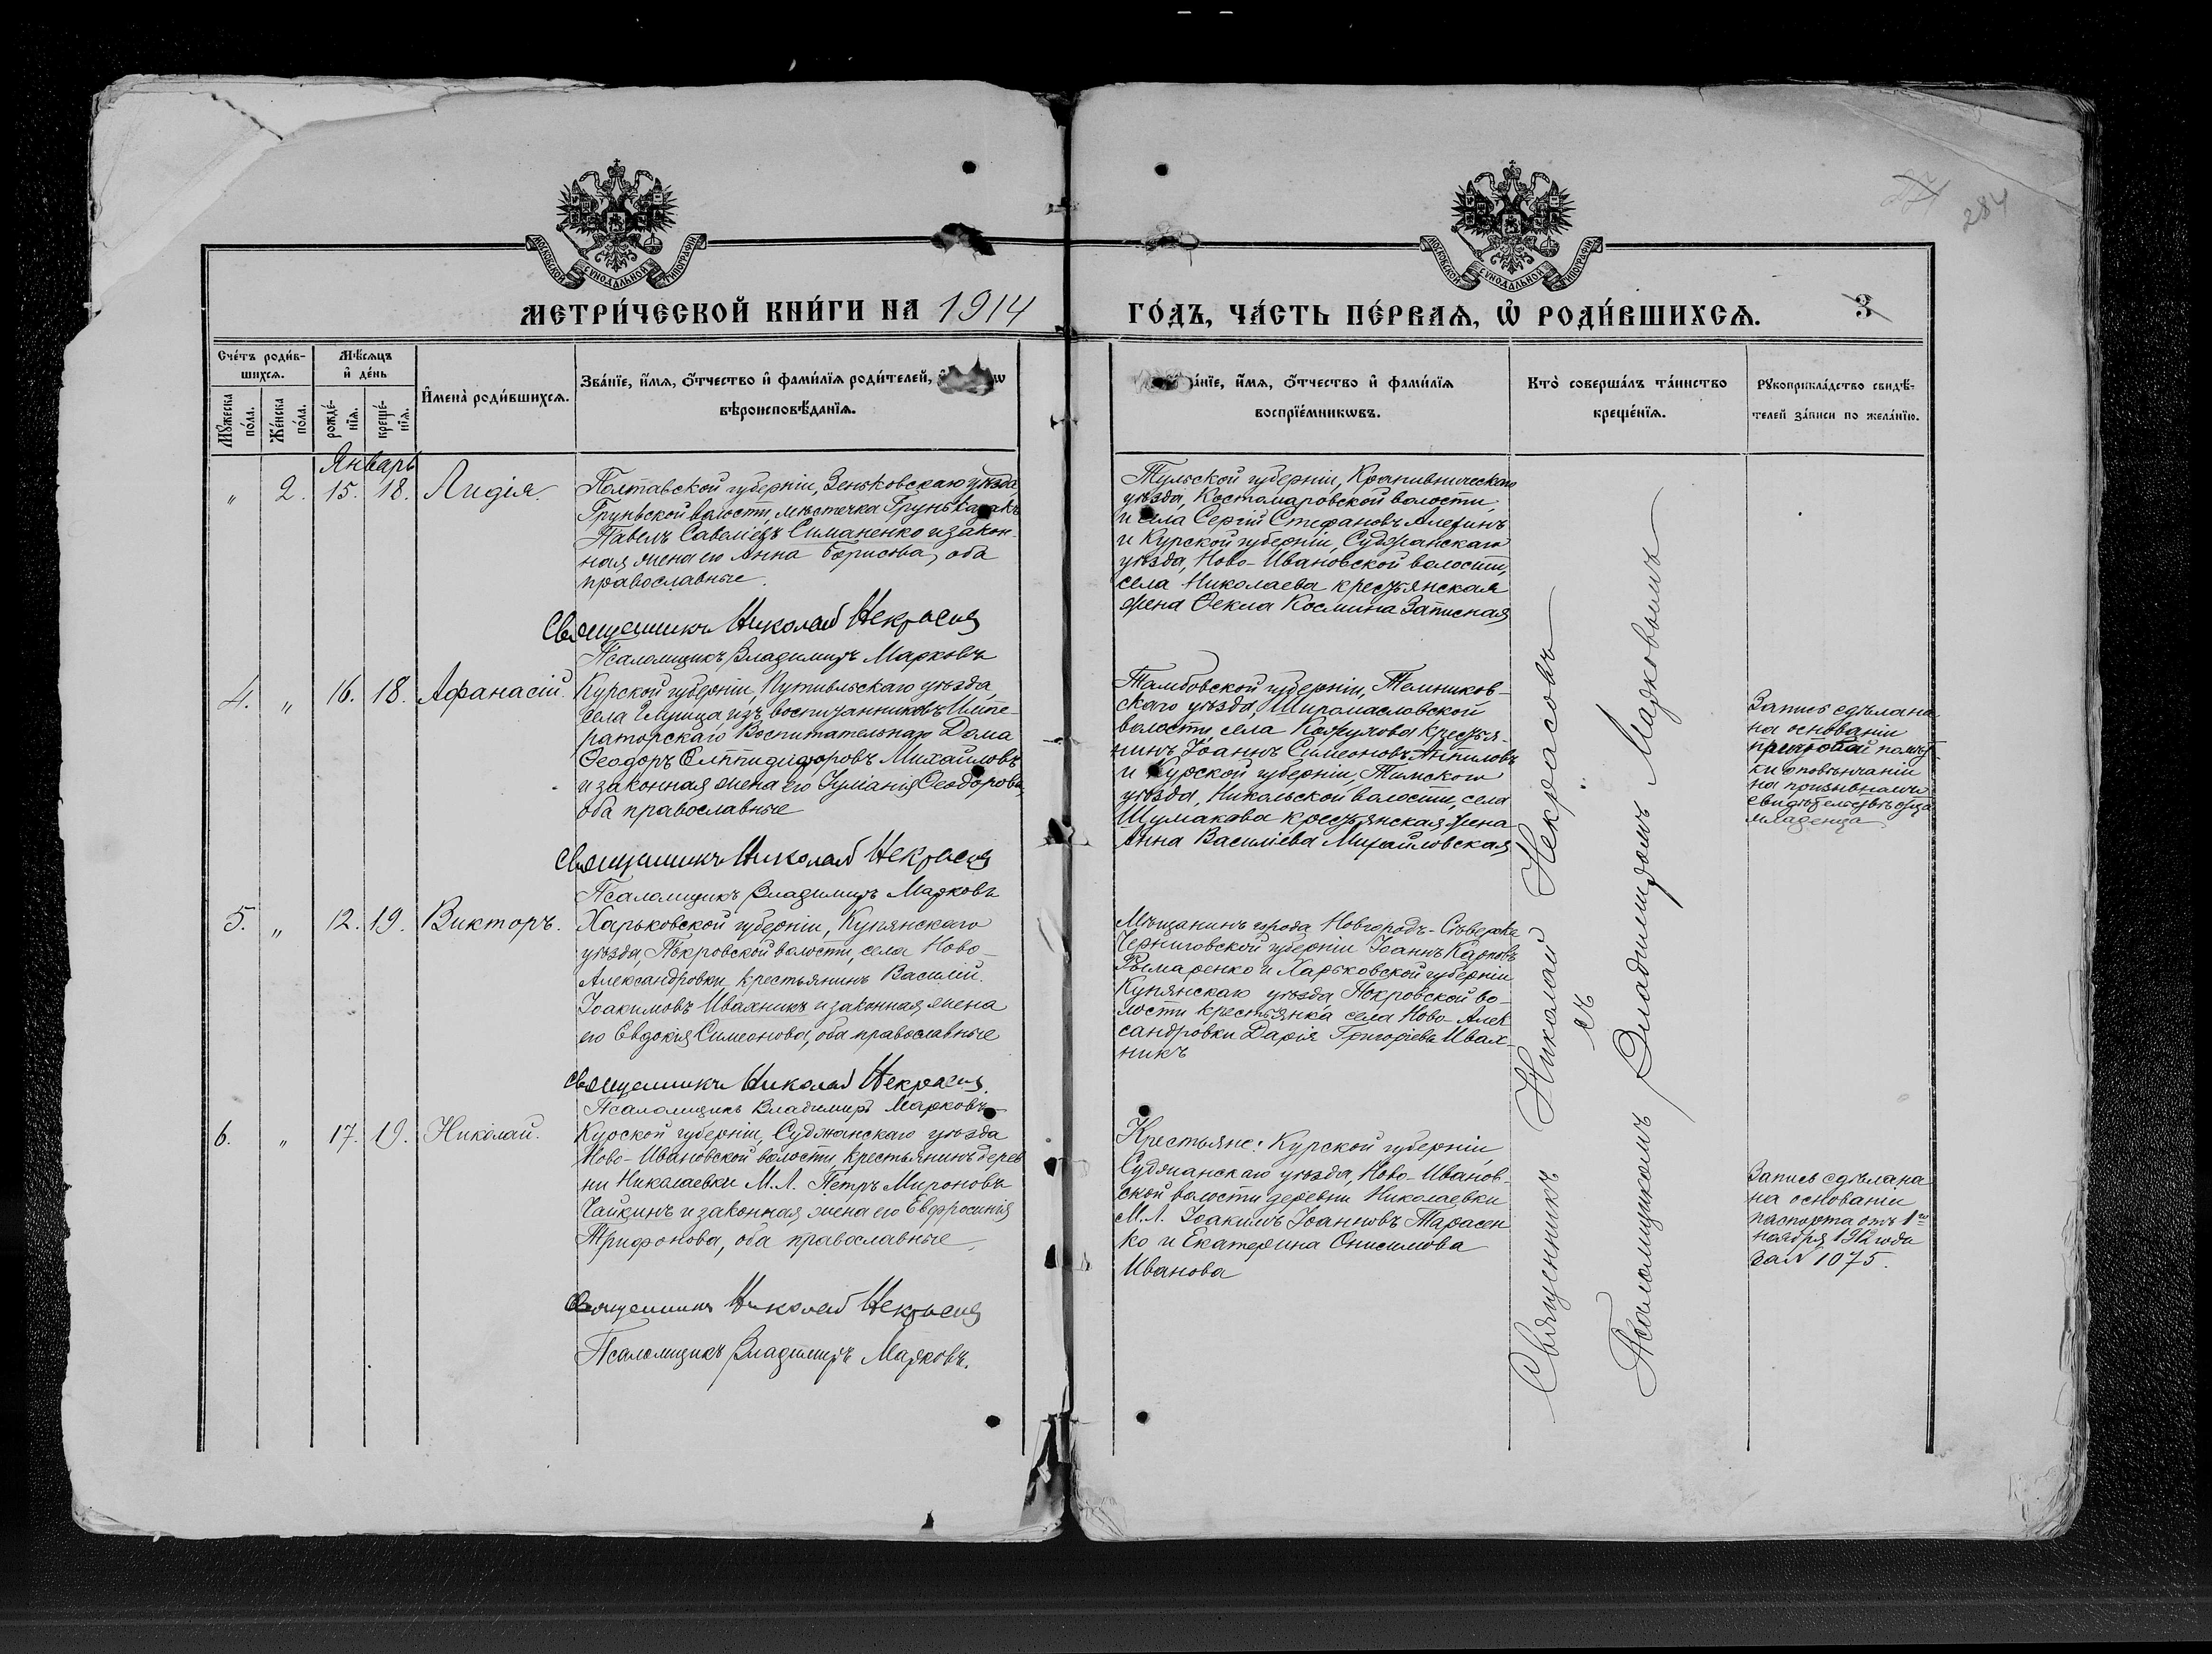 284
МОСКОВСКОЙ СѴНОДАЛЬНОЙ ТИПОГРАФІИ
МОСКОВСКОЙ СѴНОДАЛЬНОЙ ТИПОГРАФІИ
МЕТРИ́ЧЕСКОЙ КНИ́ГИ НА 1914
ГО́ДЪ, ЧА́СТЬ ПЕ́РВАѦ, Ѡ҆ РОДИ́ВШИХСѦ.
3
Сче́тъ роди́в-
шихсѧ.
Мѣ́сѧцъ
и҆ де́нь
Мꙋ́жеска по́ла.
Же́нска по́ла.
рожде́-
нїѧ.
креще́-
нїѧ.
И҆мена̀ роди́вшихсѧ.
Зва́нїе, и҆́мѧ, ѻ҆́тчество и҆ фами́лїѧ роди́телей,
вѣроисповѣ́данїѧ.
а́нїе, и҆́мѧ, ѻ҆́тчество и҆ фами́лїѧ
воспрїе́мникѡвъ.
Кто̀ соверша́лъ та́инство
креще́нїѧ.
Рꙋкоприкла́дство свидѣ́-
телей за́писи по жела́нїю.
Январь
" 2. 15. 18. Лидія.
Полтавской губерніи, Зеньковскаго уѣзда,
Груньской волости, мѣстечка Грунь казакъ
Павелъ Савеліевъ Симаненко и закон-
ная жена его Анна Борисова, оба
православные.
Священникъ Николай Некрасовъ
Псаломщикъ Владимиръ Марковъ
Тульской губерніи, Крапивническаго
уѣзда, Костомаровской волости,
и села Сергій Стефановъ Алехинъ
и Курской губерніи, Суджанскаго
уѣзда, Ново-Ивановской волости,
села Николаева крестьянская
жена Ѳекла Космина Записная
4. " 16. 18. Афанасій.
Курской губерніи, Путивльскаго уѣзда,
села изъ воспитанниковъ Импе-
раторскаго Воспитательнаго Дома
Ѳеодоръ Михайловъ
и законная жена его Ѳеодорова,
оба православные
Священникъ Николай Некрасовъ
Псаломщикъ Владимиръ Марковъ
Тамбовской губерніи, Темников-
скаго уѣзда, Широмасловской
волости, села крестья-
нинъ Іоаннъ Симеоновъ Антиповъ
и Курской губерніи, Тимскаго
уѣзда, Никольской волости, села
Шумакова крестьянская жена
Анна Василіева Михайловская
Запись сдѣлана
на основаніи
помѣт-
ки о повѣнчаніи
на призывномъ
свидѣтельствѣ отца
младенца
5. " 12. 19. Викторъ.
Харьковской губерніи, Купянскаго
уѣзда, Покровской волости, села Ново-
Александровки крестьянинъ Василій
Іоакимовъ Ивахникъ и законная жена
его Евдокія Симеонова, оба православные
Священникъ Николай Некрасовъ.
Псаломщикъ Владимиръ Марковъ
Мѣщанинъ города Новгородъ-Сѣверска
Черниговской губерніи Іоаннъ Карповъ
Рымаренко и Харьковской губерніи
Купянскаго уѣзда Покровской во-
лости крестьянка села Ново-Алек
сандровки Дарія Григоріева Ивах-
никъ
6. " 17. 19. Николай.
Курской губерніи, Суджанскаго уѣзда
Ново-Ивановской волости, крестьянинъ дерев
ни Николаевки М.Л. Петръ Мироновъ
Чайкинъ и законная жена его Евфросинія
Трифонова, оба православные.
Священникъ Николай Некрасовъ
Псаломщикъ Владимиръ Марковъ.
Крестьяне: Курской губерніи
Суджанскаго уѣзда, Ново-Иванов-
ской волости деревни Николаевки
М.Л. Іоакимъ Іоанновъ Тарасен
ко и Екатерина Онисимова
Иванова
Запись сдѣлана
на основаніи
паспорта отъ 1го
ноября 1912 года
за № 1075.
Священникъ Николай Некрасовъ
съ
Псаломщикомъ Владимиромъ Марковымъ